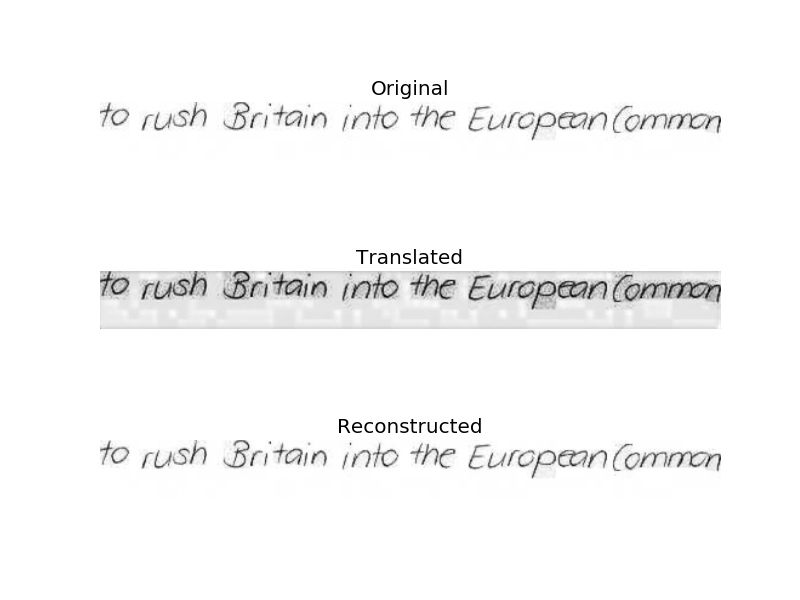 Original
to rush Britain into the European Common
Translated
to rush Britain into the European Common
Reconstructed
to rush Britain into the European Common